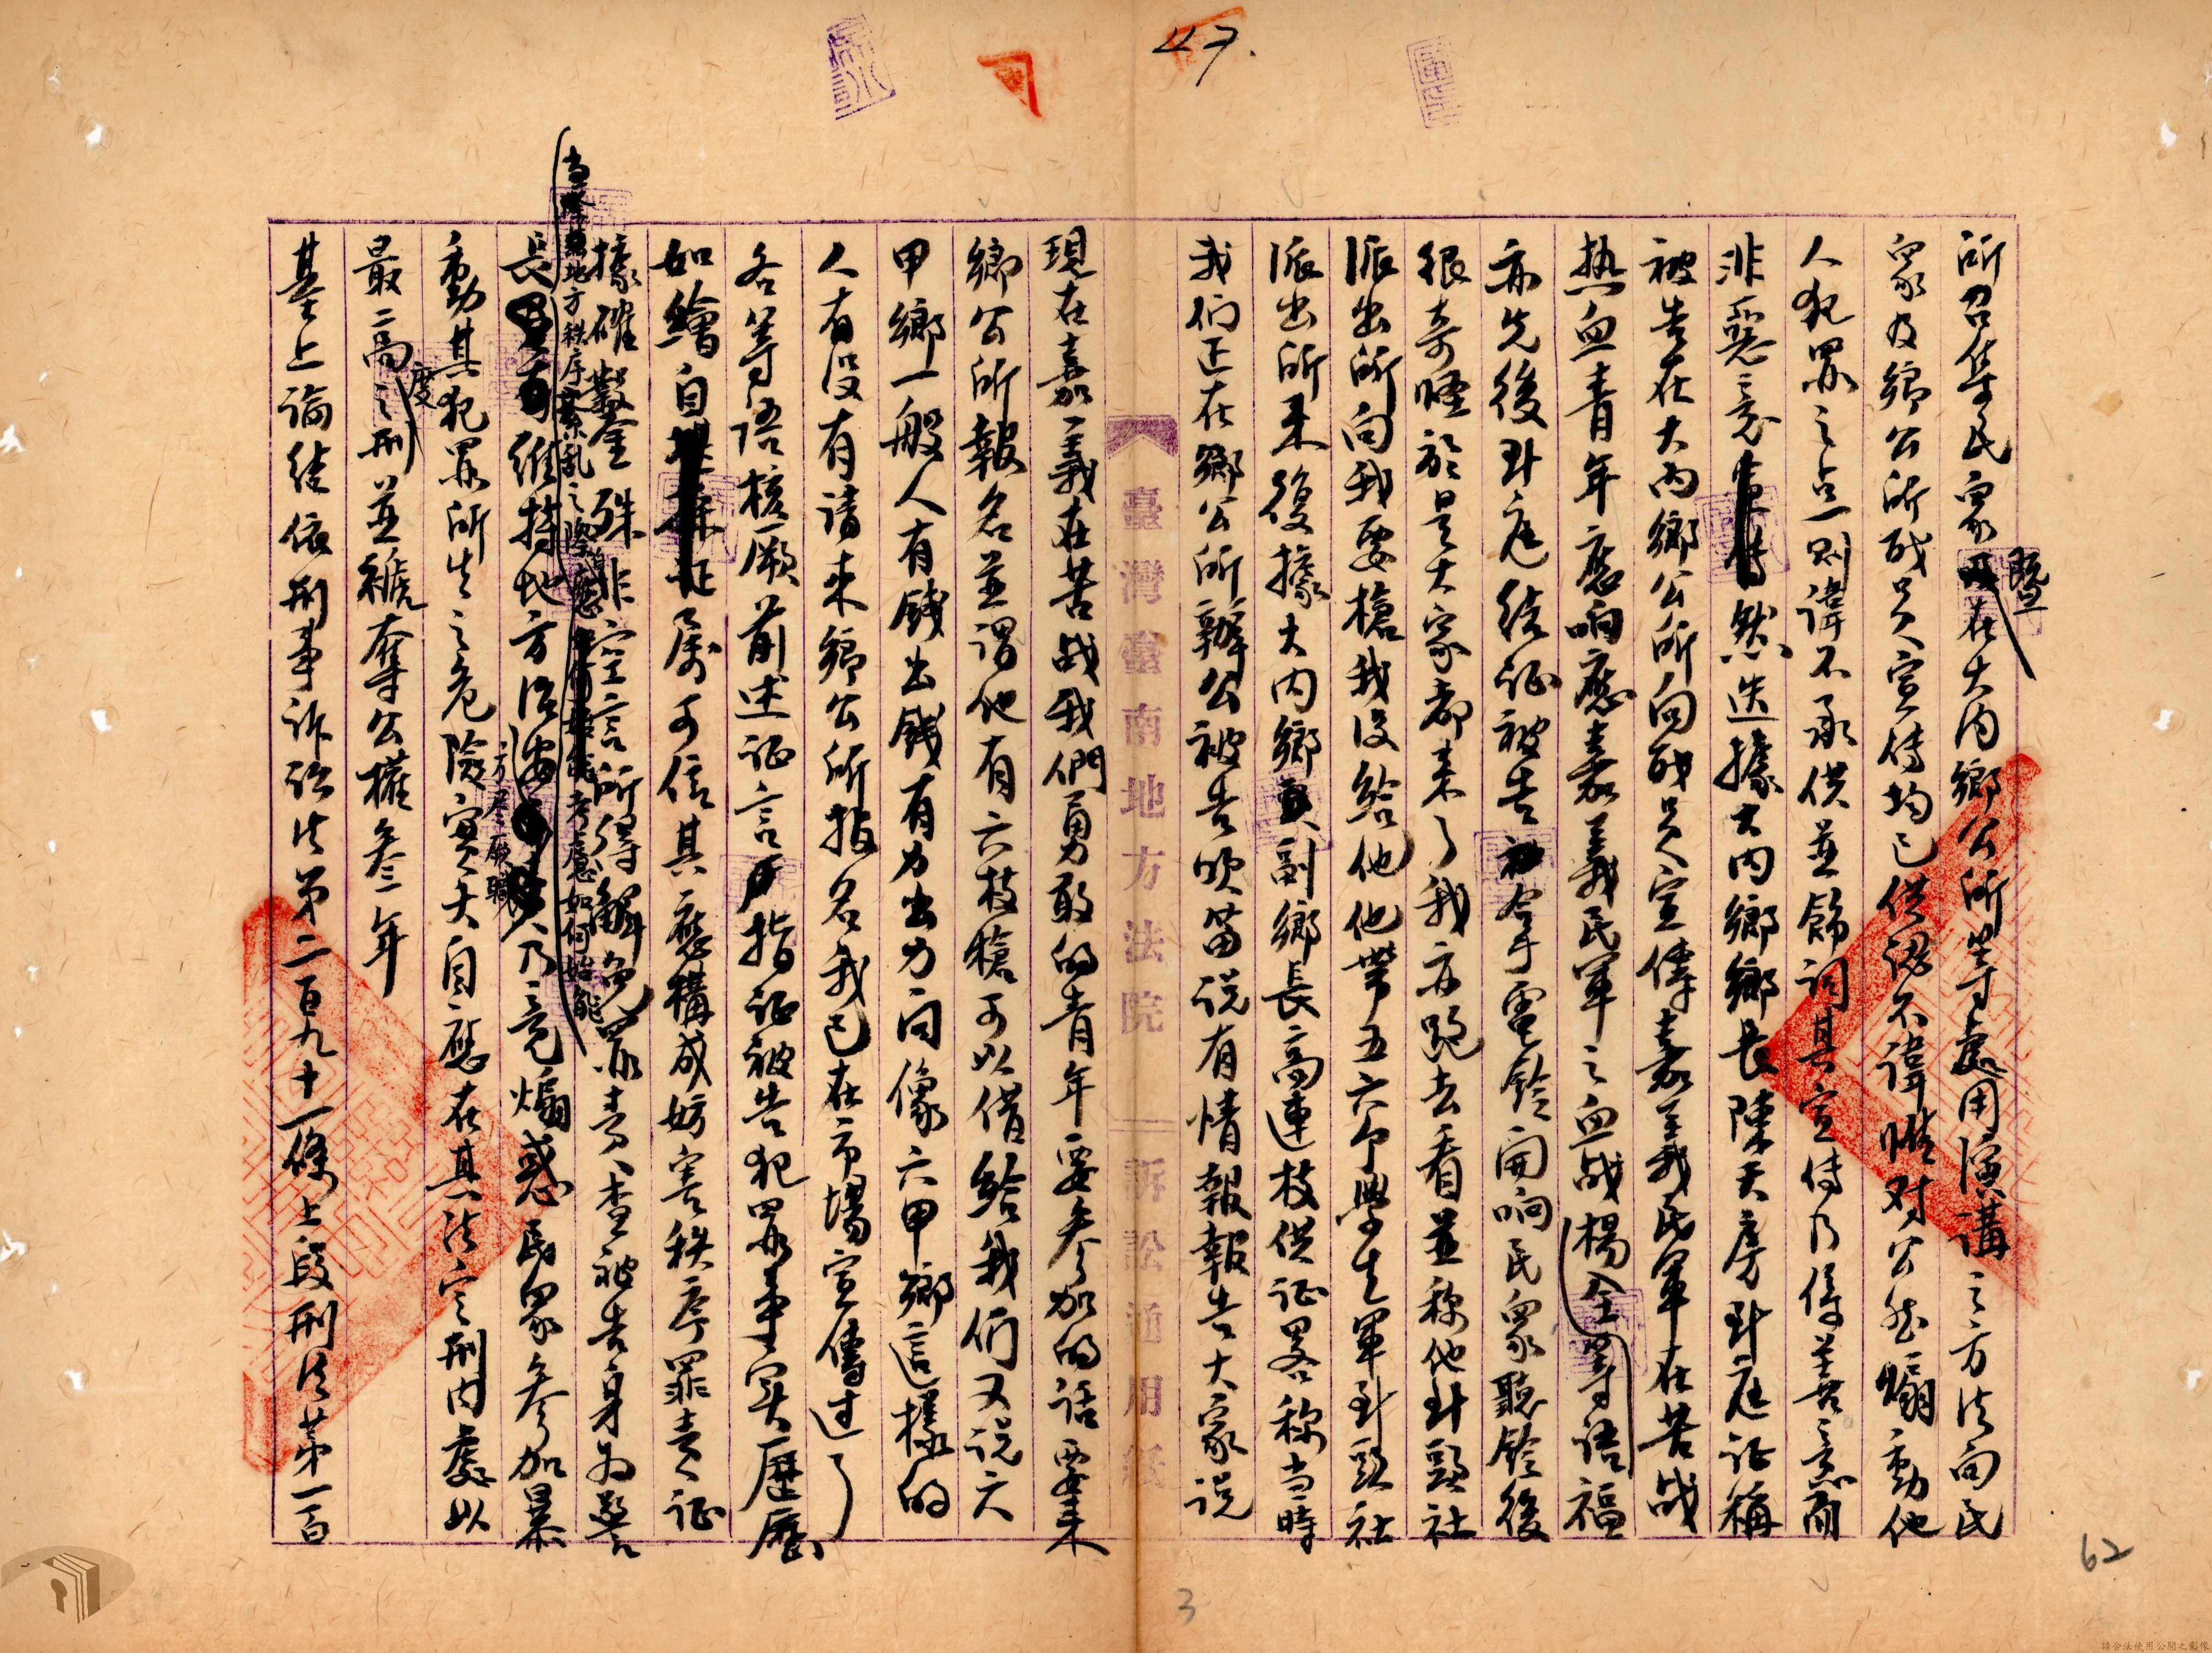 47.
所召集民衆暨在大內鄉公所等處用演講之方法向民
衆及鄉公所職員宣傳均已供認不諱惟对公然煽動他
人犯罪之点則諱不承供並飾詞其宣傳乃係善意而
非惡意然迭據大內鄉鄉長陳天房到庭证稱
被告在大內鄉公所向職員宣傳嘉義民軍在苦战
热血青年應响應嘉義民軍之血战楊全等語福
亦先後到庭结证被告令手電鈴開响民衆聽鈴後
很奇怪於是大家都来了我亦跑去看並称他到頭社
派出所向我要槍我没給他他帶五六个學生軍到頭社
派出所来復據大内鄉副鄉長高連枝供证畧称当時
我们正在鄉公所辦公被告吹笛说有情報報告大家说
臺灣臺南地方法院 訴訟通用紙
現在嘉義在苦战我們勇敢的青年要参加的話要来
鄉公所報名並謂他有六枝槍可以借給我们又说六
甲鄉一般人有錢出錢有力出力问像六甲鄉這樣的
人有没有請来鄉公所指名我已在市場宣傳过了
各等語核厥前述证言指证被告犯罪事実歷歷
如繪自属可信其應構成妨害秩序罪責证
據確鑿殊非空言所得解免罪責查被告身为警
当塋地方秩序紊乱之際應考慮如何始能
長維持地方治安方尽厥職乃竟煽惑民衆参加暴
動其犯罪所生之危險實大自應在其法定刑内處以
最高度之刑並褫奪公權叁年
基上論结依刑事诉讼法第二百九十一條上段刑法第一百
62
3
請合法使用公開之影像